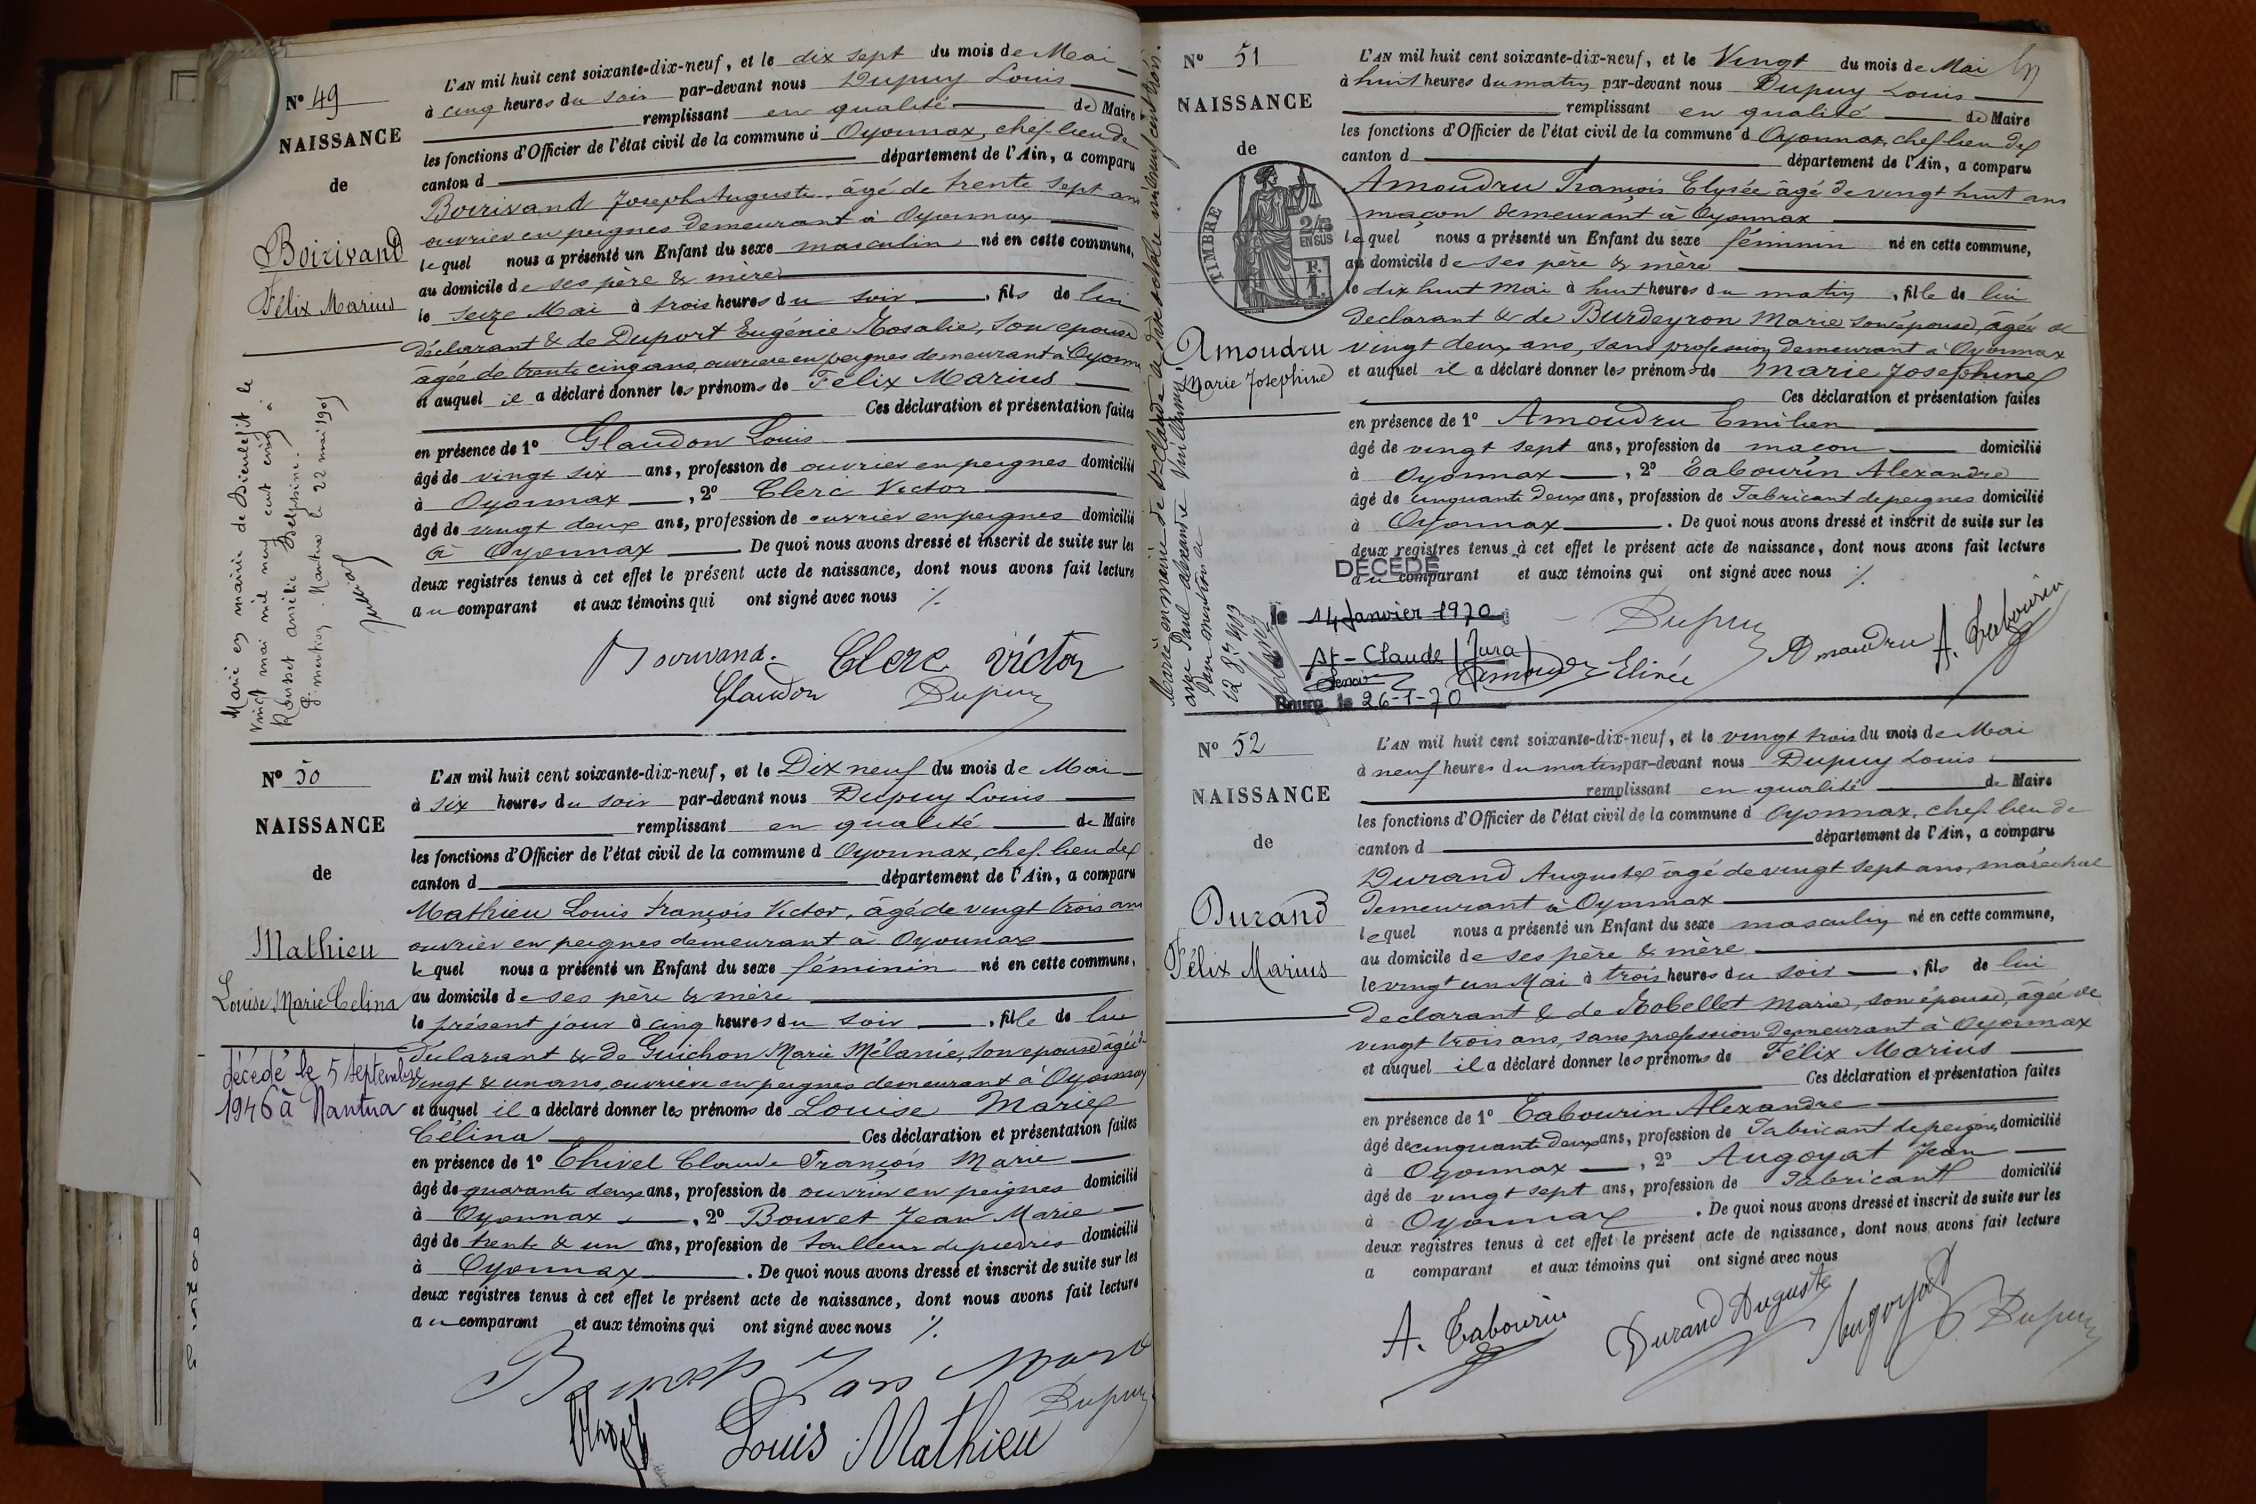 N° 49
NAISSANCE
de
Boirivand
Félix Marius
Marié en mairie de Dieulefit le
vingt mai mil neuf cent cinq à
Rousset Delphine.
Pr mention. Nantua le 22 mai 1905
L'AN mil huit cent soixante-dix-neuf, et le dix sept du mois de Mai
à cinq heures du soir par-devant nous Dupuy Louis
remplissant en qualité de Maire
les fonctions d'Officier de l'état civil de la commune d Oyonnax, chef-lieu de
canton d département de l'Ain, a comparu
Boirivand Joseph Auguste, âgé de trente sept ans
ouvrier en peignes demeurant à Oyonnax
lequel nous a présenté un Enfant du sexe masculin né en cette commune,
au domicile de ses père & mère
le seize Mai à trois heures du soir, fils de lui
déclarant & de Duport Eugénie Rosalie, son épouse
âgée de trente cinq ans, ouvrière en peignes demeurant à Oyonnax
et auquel il a déclaré donner les prénoms de Félix Marius
Ces déclaration et présentation faites
en présence de 1° Glaudon Louis
âgé de vingt six ans, profession de ouvrier en peignes domicilié
à Oyonnax, 2° Clerc Victor
âgé de vingt deux ans, profession de ouvrier en peignes domicilié
à Oyonnax De quoi nous avons dressé et inscrit de suite sur les
deux registres tenus à cet effet le présent acte de naissance, dont nous avons fait lecture
au comparant et aux témoins qui ont signé avec nous ./.
Boirivand. Clerc Victor
Glaudon Dupuy
N° 50
NAISSANCE
de
Mathieu
Louise Marie Célina
décédé le 5 septembre
1946 à Nantua
L'AN mil huit cent soixante-dix-neuf, et le Dix neuf du mois de Mai
à six heures du soir par-devant nous Dupuy Louis
remplissant en qualité de Maire
les fonctions d'Officier de l'état civil de la commune d Oyonnax, chef-lieu de
canton d département de l'Ain, a comparu
Mathieu Louis François Victor, âgé de vingt trois ans
ouvrier en peignes demeurant à Oyonnax
lequel nous a présenté un Enfant du sexe féminin né en cette commune,
au domicile de ses père & mère
le présent jour à cinq heures du soir, fille de lui
déclarant & de Guichon Marie Mélanie, son épouse âgée de
vingt & un ans, ouvrière en peignes demeurant à Oyonnax
et auquel il a déclaré donner les prénoms de Louise Marie
Célina Ces déclaration et présentation faites
en présence de 1° Thivel Claude François Marie
âgé de quarante deux ans, profession de ouvrier en peignes domicilié
à Oyonnax, 2° Bouvet Jean Marie
âgé de trente & un ans, profession de tailleur de pierres domicilié
à Oyonnax. De quoi nous avons dressé et inscrit de suite sur les
deux registres tenus à cet effet le présent acte de naissance, dont nous avons fait lecture
au comparant et aux témoins qui ont signé avec nous ./.
Dupuy
Louis Mathieu
N° 51
NAISSANCE
de
TIMBRE
2/10 EN SUS
Amoudru
Marie Josephine
avec Paul Alexandre Vuillermoz
L'AN mil huit cent soixante-dix-neuf, et le Vingt du mois de Mai
à huit heures du matin par-devant nous Dupuy Louis
remplissant en qualité de Maire
les fonctions d'Officier de l'état civil de la commune d Oyonnax, chef-lieu de
canton d département de l'Ain, a comparu
Amoudru François Elysée âgé de vingt huit ans
maçon demeurant à Oyonnax
lequel nous a présenté un Enfant du sexe féminin né en cette commune,
au domicile de ses père & mère
le dix huit Mai à huit heures du matin, fille de lui
déclarant & de Burdeyron Marie son épouse, âgée de
vingt deux ans, sans profession, demeurant à Oyonnax
et auquel il a déclaré donner les prénoms de Marie Josephine
Ces déclaration et présentation faites
en présence de 1° Amoudru Emilien
âgé de vingt sept ans, profession de maçon domicilié
à Oyonnax, 2° Tabourin Alexandre
âgé de cinquante deux ans, profession de Fabricant de peignes domicilié
à Oyonnax. De quoi nous avons dressé et inscrit de suite sur les
deux registres tenus à cet effet le présent acte de naissance, dont nous avons fait lecture
au comparant et aux témoins qui ont signé avec nous ./.
DÉCÉDÉ
le 14 Janvier 1970
St-Claude (Jura)
Bourg le 26-1-70
Dupuy
Amoudru Elisée Amoudru A. Tabourin
N° 52
NAISSANCE
de
Durand
Félix Marius
L'AN mil huit cent soixante-dix-neuf, et le vingt trois du mois de Mai
à neuf heures du matin par-devant nous Dupuy Louis
remplissant en qualité de Maire
les fonctions d'Officier de l'état civil de la commune d Oyonnax, chef-lieu de
canton d département de l'Ain, a comparu
Durand Auguste âgé de vingt sept ans, maréchal
demeurant à Oyonnax
lequel nous a présenté un Enfant du sexe masculin né en cette commune,
au domicile de ses père & mère
le vingt un Mai à trois heures du soir, fils de lui
déclarant & de Robellet Marie, son épouse, âgée de
vingt trois ans, sans profession demeurant à Oyonnax
et auquel il a déclaré donner les prénoms de Félix Marius
Ces déclaration et présentation faites
en présence de 1° Tabourin Alexandre
âgé de cinquante deux ans, profession de Fabricant de peignes domicilié
à Oyonnax, 2° Augoyat Jean
âgé de vingt sept ans, profession de Fabricant domicilié
à Oyonnax. De quoi nous avons dressé et inscrit de suite sur les
deux registres tenus à cet effet le présent acte de naissance, dont nous avons fait lecture
a comparant et aux témoins qui ont signé avec nous
A. Tabourin Durand Auguste Augoyat Dupuy